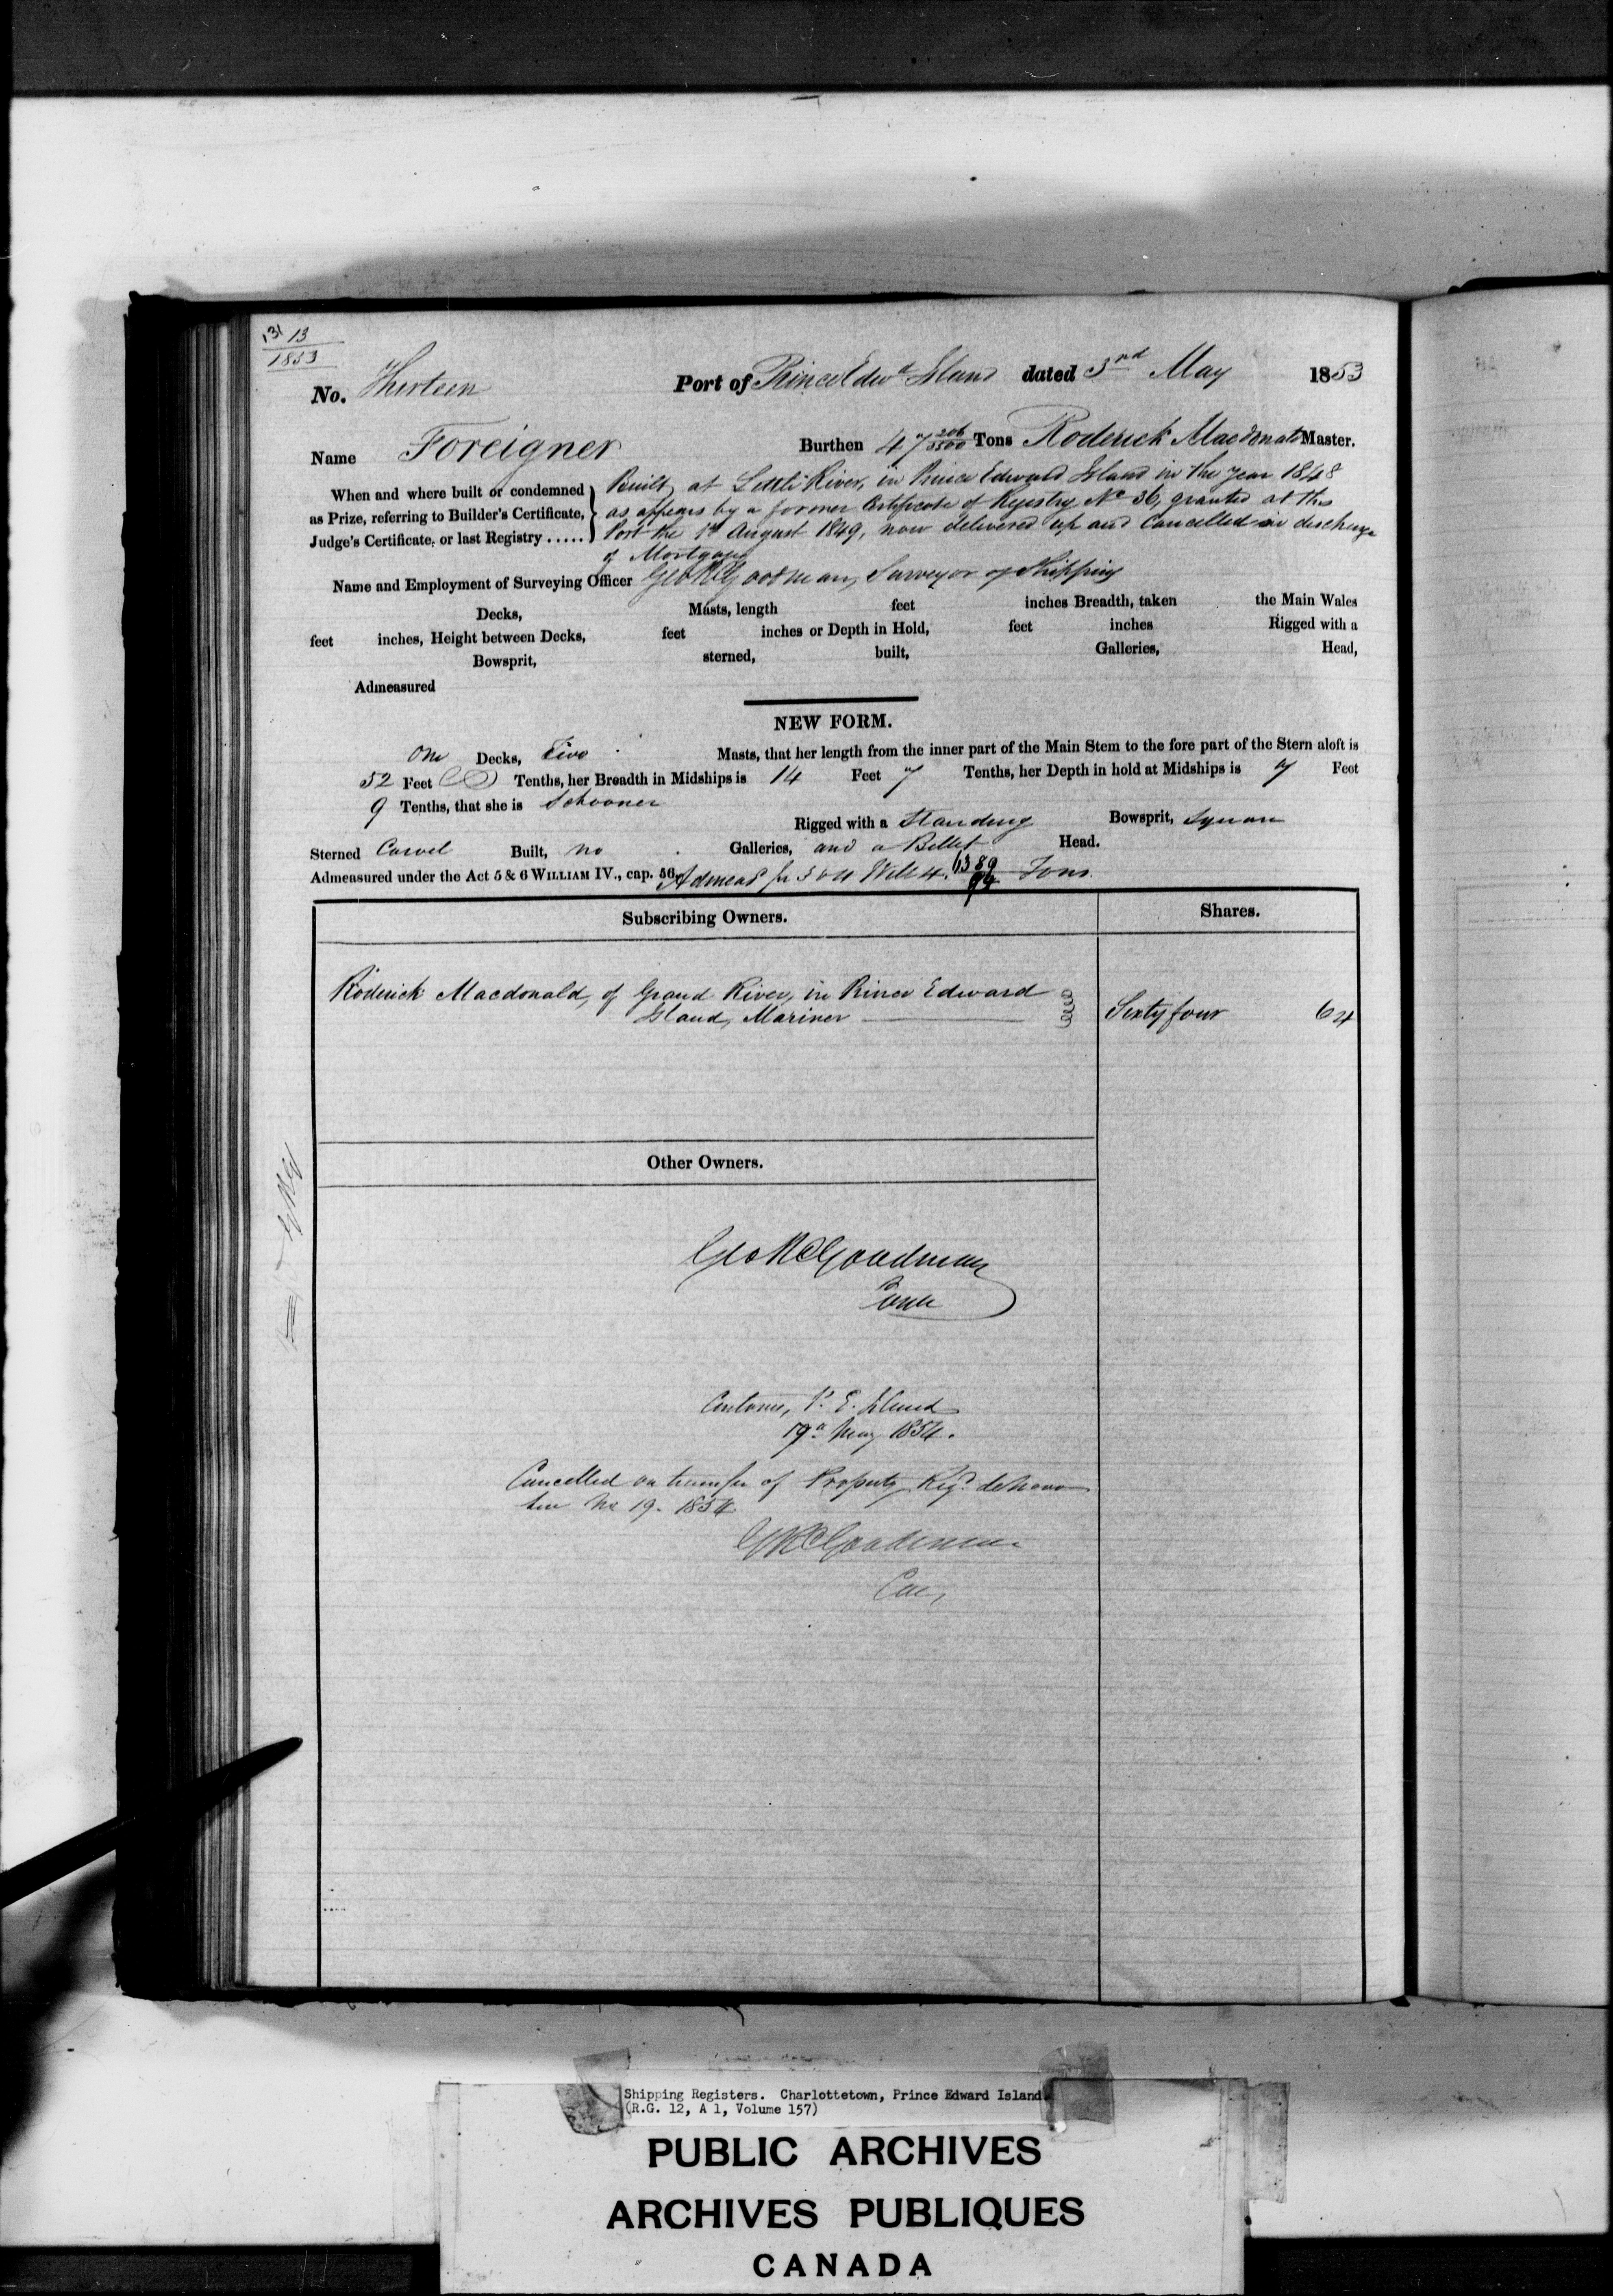 131 13
1853
No. Thirteen Port of Prince Edwd Island dated 3rd May 1853
Name Foreigner Burthen 47 206/3500 Tons Roderick Macdonald Master.
When and where built or condemned as Prize, referring to Builder's Certificate, Judge's Certificate, or last Registry .....
Built at Little River, in Prince Edward Island in the year 1848
as appears by a former Certificate of Registry No 36, granted at this
Port the 1st August 1849, now delivered up and Cancelled in discharge
of Mortgage
Name and Employment of Surveying Officer Geo R Goodman, Surveyor of Shipping
Decks, Masts, length feet inches Breadth, taken the Main Wales
feet inches, Height between Decks, feet inches or Depth in Hold, feet inches Rigged with a
Bowsprit, sterned, built, Galleries, Head,
Admeasured
NEW FORM.
One Decks, Two Masts, that her length from the inner part of the Main Stem to the fore part of the Stern aloft is
52 Feet Tenths, her Breadth in Midships is 14 Feet 7 Tenths, her Depth in hold at Midships is 7 Feet
9 Tenths, that she is Schooner
Rigged with a Standing Bowsprit, Square
Sterned Carvel Built, no Galleries, and a Billet Head.
Admeasured under the Act 5 & 6 WILLIAM IV., cap. 56. Admeas pr 3 & 4 Will 4. 89/94 Tons
Subscribing Owners. Shares.
Roderick Macdonald, of Grand River, in Prince Edward
Island, Mariner Sixty four 64
Other Owners.
Geo R Goodman
Customs, P. E. Island
19th May 1854.
Cancelled on transfer of Property Regd de novo
See No 19. 1854
G R Goodman
Shipping Registers. Charlottetown, Prince Edward Island
(R.G. 12, A 1, Volume 157)
PUBLIC ARCHIVES
ARCHIVES PUBLIQUES
CANADA